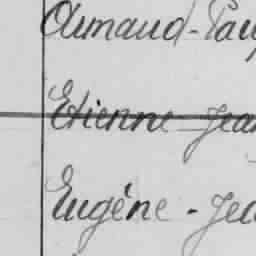 Armand-Pau
Etienne-Jean
Eugène-Jea